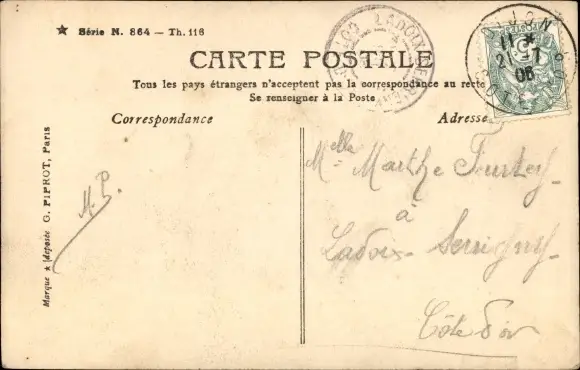 ★ Série N. 864 — Th. 116
CARTE POSTALE
Tous les pays étrangers n'acceptent pas la correspondance au recto
Se renseigner à la Poste
Correspondance
Adresse
Marque ★ déposée G. PIPROT, Paris
M. P.
LADOIX-SERRIGNY
DIJON
21 - 7
06
5
Melle Marthe
à
Ladoix-Serrigny-
Côte d'or